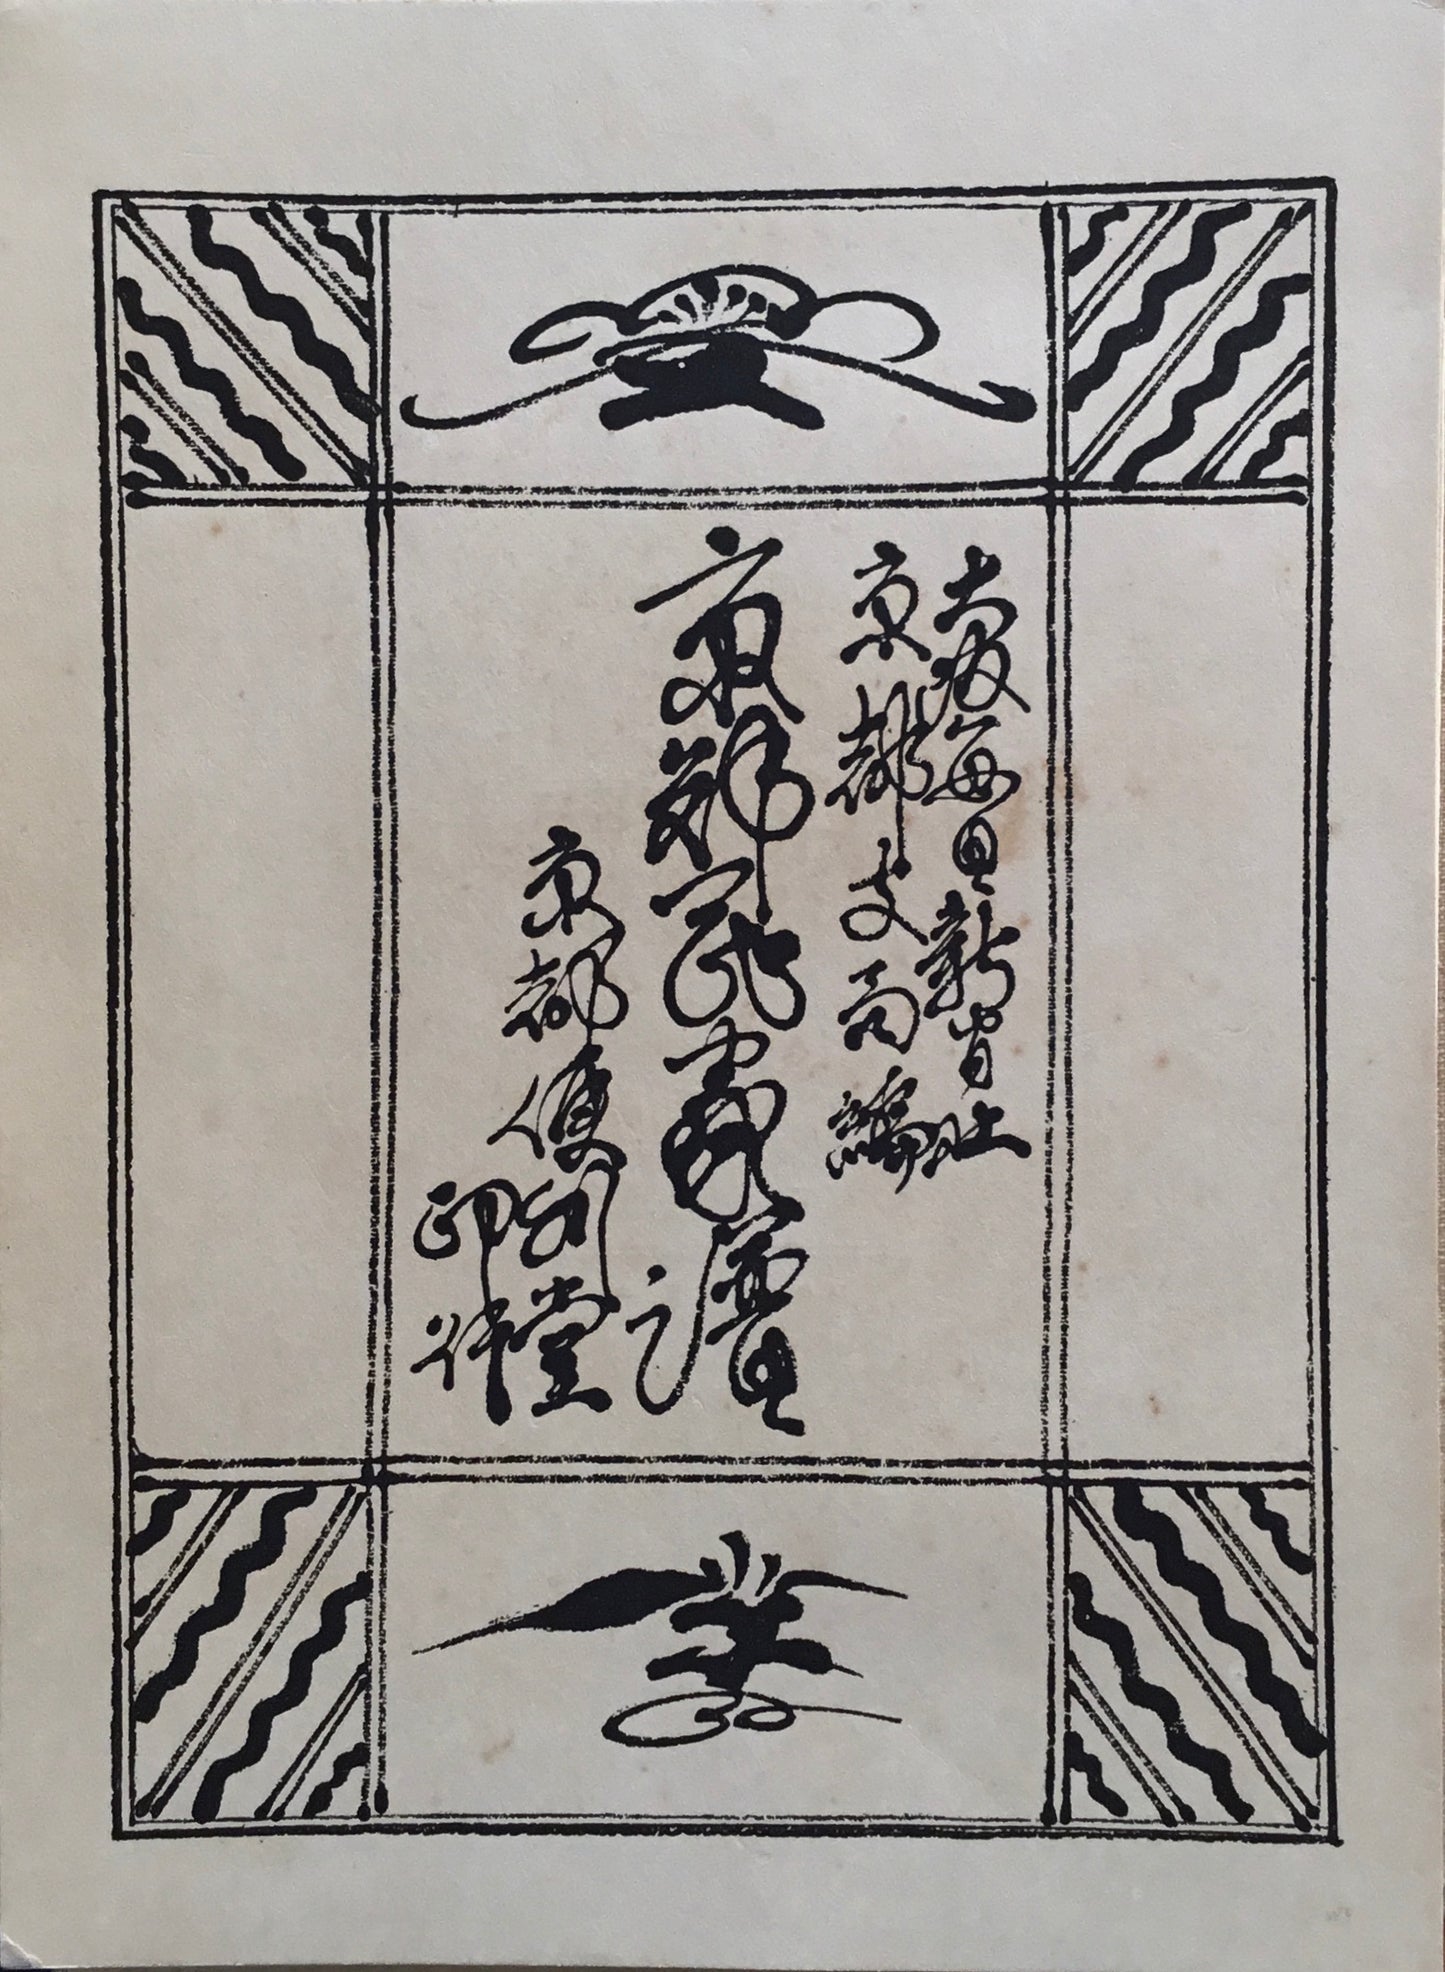 大阪毎日新聞社
京都支局編
京郊民家譜
京都便利堂
印行